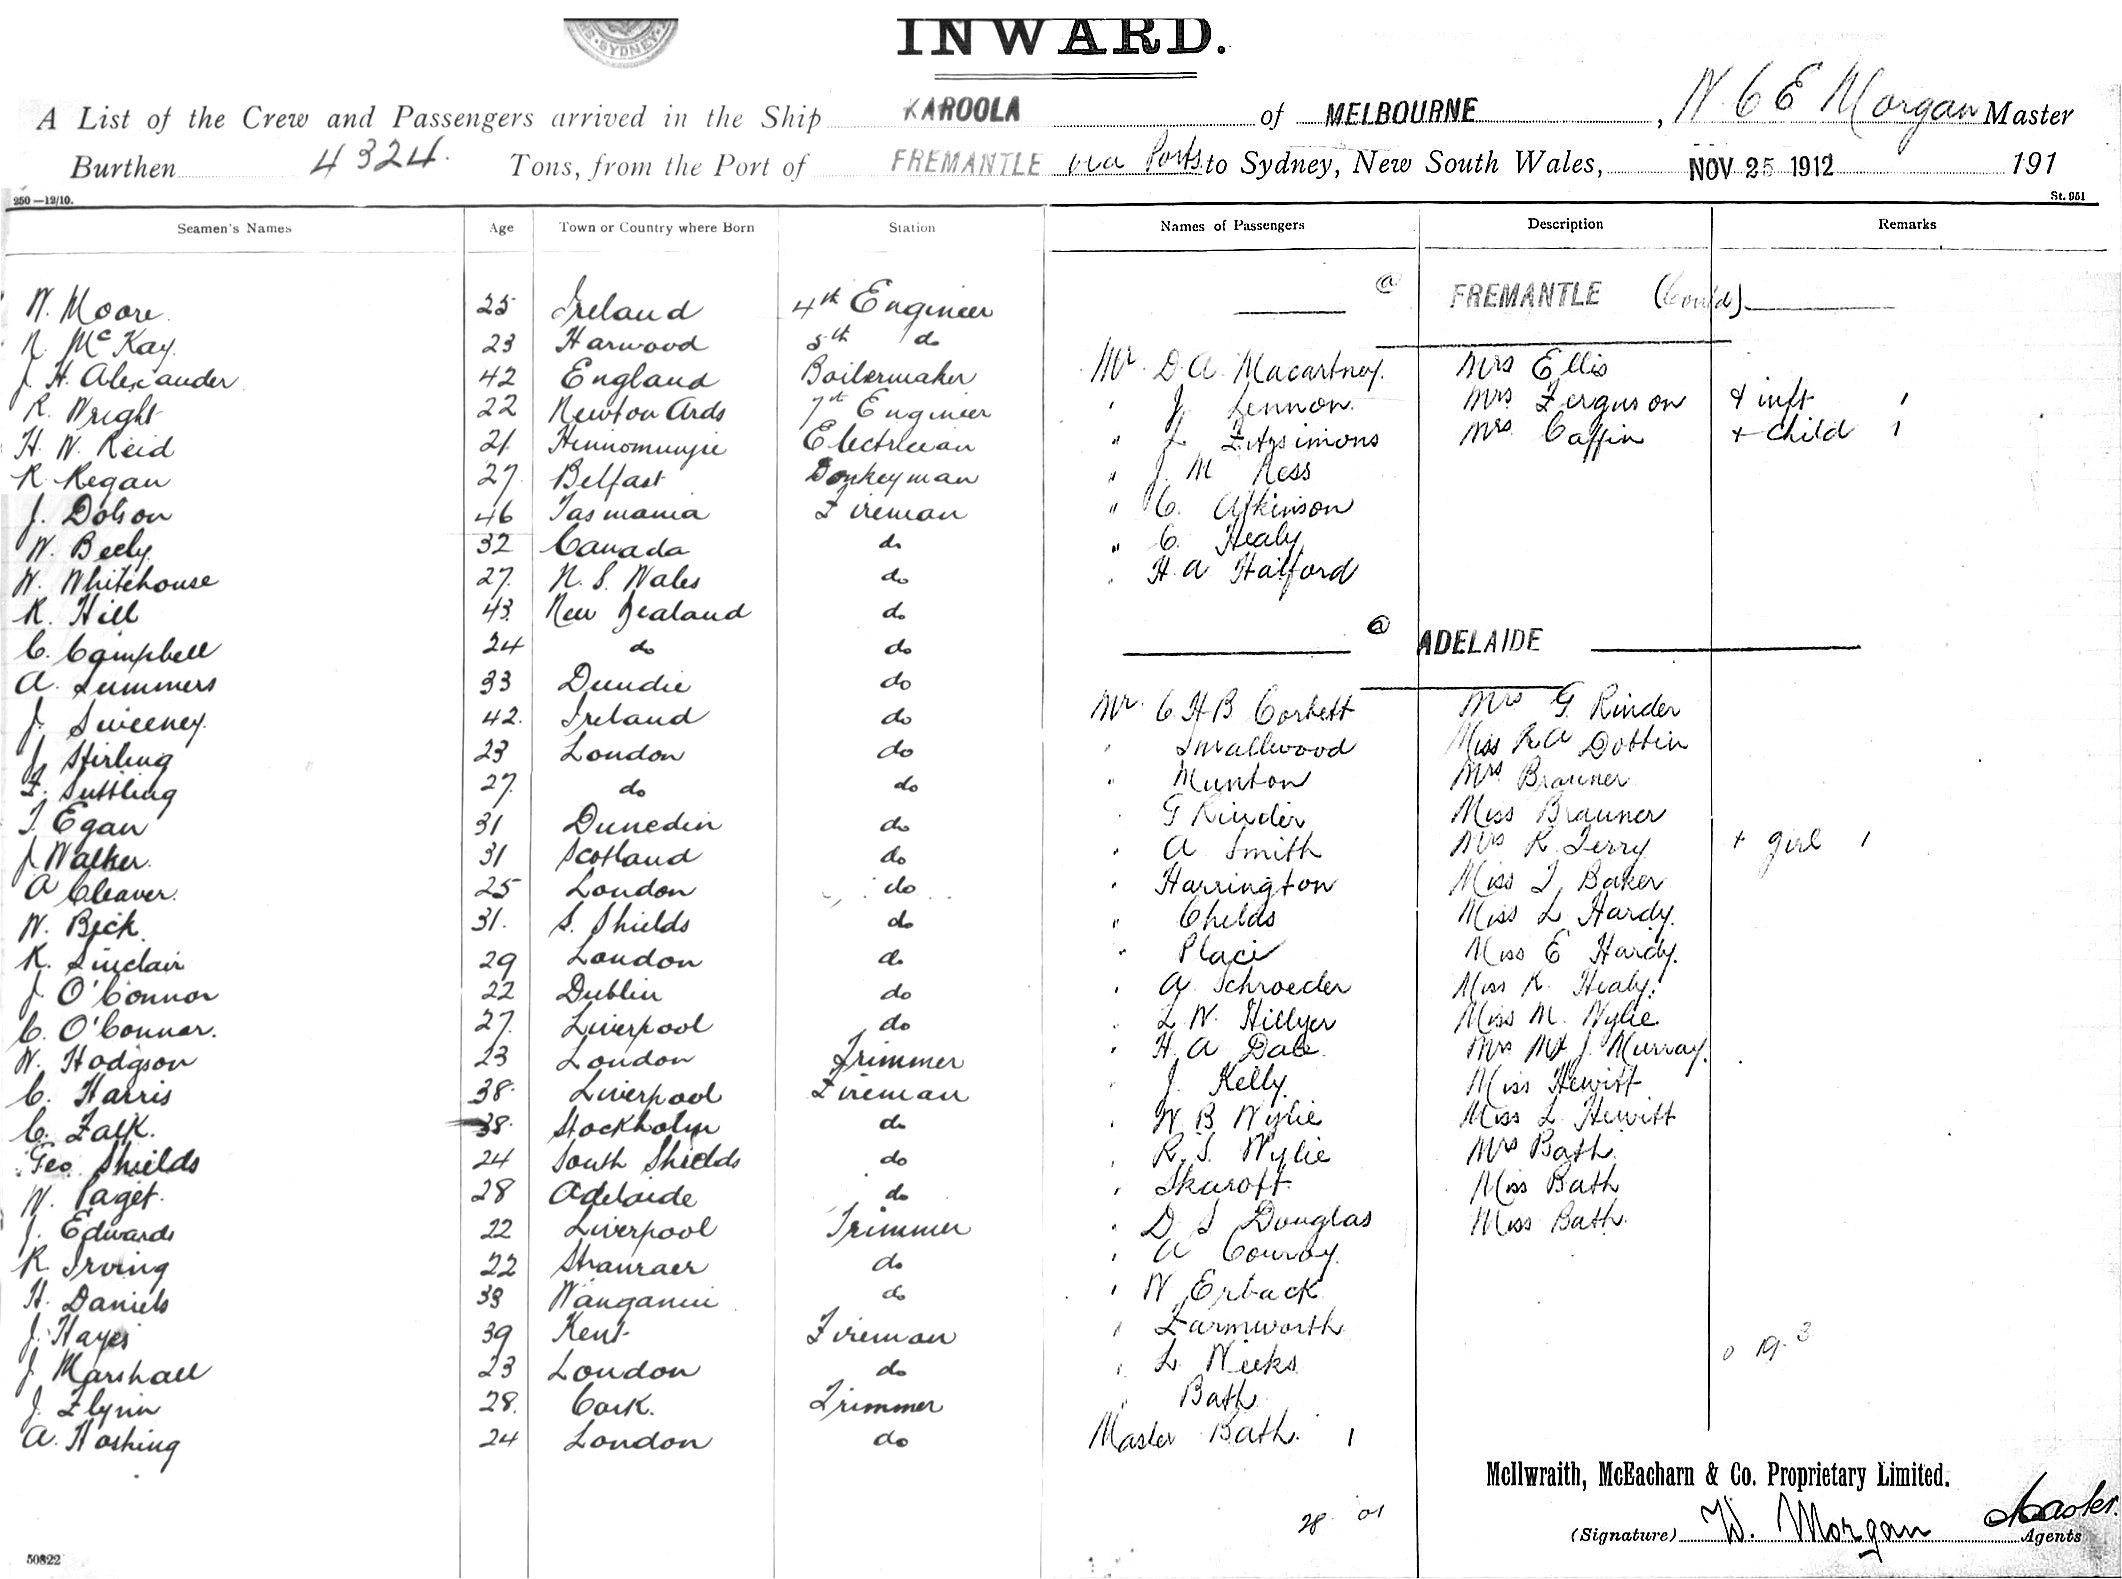 SYDNEY
INWARD.
A List of the Crew and Passengers arrived in the Ship KAROOLA of MELBOURNE, W C E Morgan Master
Burthen 4324. Tons, from the Port of FREMANTLE via Ports to Sydney, New South Wales, NOV 25 1912 191
250—12/10. St. 951
Seamen's Names Age Town or Country where Born Station Names of Passengers Description Remarks
W. Moore 25 Ireland 4th Engineer
R. McKay 23 Harwood 5th do
J. H. Alexander 42 England Boilermaker
R. Wright 22 Newton Ards 7th Engineer
H. W. Reid 21 Electrician
R Regan 27 Belfast Donkeyman
J. Dobson 46 Tasmania Fireman
W. Beely 32 Canada do
W. Whitehouse 27 N. S. Wales do
R. Hill 43 New Zealand do
C. Campbell 24 do do
A. Summers 33 Dundie do
J. Sweeney 42 Ireland do
J. Stirling 23 London do
F. Suttling 27 do do
T Egan 31 Dunedin do
J Walker. 31 Scotland do
A Cleaver. 25 London do
W. Beck. 31. S. Shields do
R. Sinclair 29 London do
J. O'Connor 22 Dublin do
C. O'Connor. 27 Liverpool do
W. Hodgson 23 London Trimmer
C. Harris 38 Liverpool Fireman
C. Falk. 38 Stockholm do
Geo. Shields 24 South Shields do
W. Paget. 28 Adelaide do
J. Edwards 22 Liverpool Trimmer
R Irving 22 Stranraer do
H. Daniels 33 Wanganui do
J. Hayes 39 Kent Fireman
J. Marshall 23 London do
J. Flynn 28. Cork. Trimmer
A. Hosking 24 London do
@ FREMANTLE (Cont'd)
Mr D. A. Macartney. Mrs Ellis
" J. Lennon. Mrs Ferguson + inft 1
" F. Fitzsimons Mrs Caffin + child 1
" J. M Ress
" C. Atkinson
" C. Healy
" H. A Halford
@ ADELAIDE
Mr. C H B Corbett Mrs G. Rinder
" Smallwood Miss R A Dobbin
" Munton Mrs Brauner
" G Rinder Miss Brauner
" A Smith Mrs R. Terry + girl 1
" Harrington Miss T. Baker
" Childs Miss L Hardy.
" Place Miss E Hardy.
" A. Schroeder Miss K. Healy.
" L. W. Hillyer Miss M. Wylie.
" H. A Dale Mrs M J. Murray.
" J. Kelly Miss Hewitt
" W B Wylie Miss L Hewitt
" R. S. Wylie Mrs Bath.
" Skuroft Miss Bath
" D S Douglas Miss Bath.
" A Conroy.
" W Erback
" Farmworth
" L. Weeks
" Bath
Master Bath. 1
0 19. 3
28 01
McIlwraith, McEacharn & Co. Proprietary Limited.
(Signature) W. Morgan Master.
Agents
50822